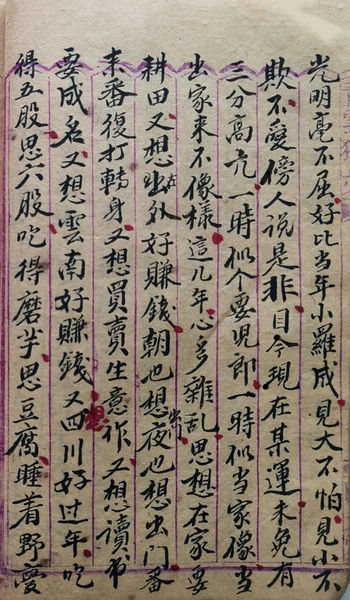 光明亮不屈好比当年小羅成見大不怕見小不
欺不愛傍人说是非目今現在某運未免有
三分高亢一時似个耍児郎一時似当家像当
出家来不像樣這几年心多雜乱思想在家要
耕田又想出在外好賺錢朝也想出門夜也想出門番
来番復打轉身又想買賣生意作又想讀书
要成名又想雲南好賺錢又想四川好过年吃
得五股思六股吃得磨芋思豆腐睡着野夢